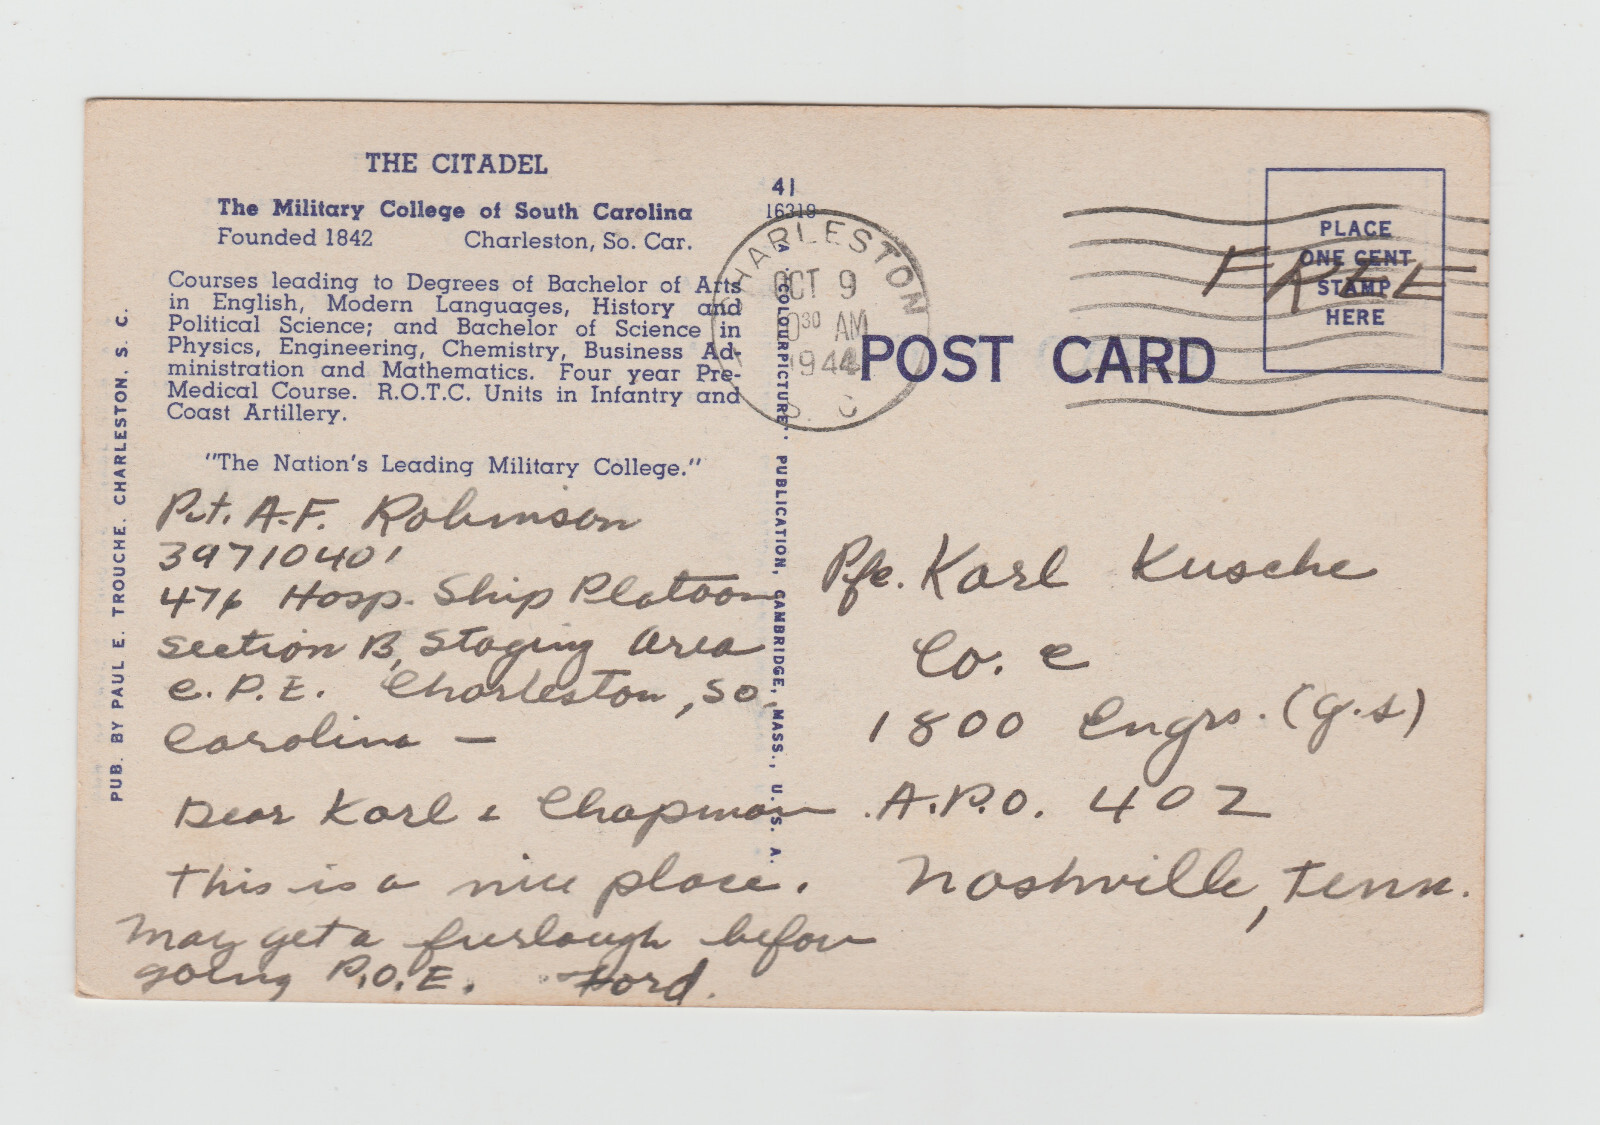 THE CITADEL
The Military College of South Carolina
Founded 1842 Charleston, So. Car.
Courses leading to Degrees of Bachelor of Arts
in English, Modern Languages, History and
Political Science; and Bachelor of Science in
Physics, Engineering, Chemistry, Business Ad-
ministration and Mathematics. Four year Pre-
Medical Course. R.O.T.C. Units in Infantry and
Coast Artillery.
"The Nation's Leading Military College."
Pvt. A.F. Robinson
39710401
476 Hosp. Ship Platoon
Section B, Staging Area
C.P.E. Charleston, So.
Carolina —
Dear Karl & Chapman
This is a nice place.
May get a furlough before
going P.O.E. Ford.
PUB. BY PAUL E. TROUCHE, CHARLESTON, S. C.
41
16319
A "COLOURPICTURE" PUBLICATION, CAMBRIDGE, MASS., U. S. A.
CHARLESTON
OCT 9
30 AM
1944
S. C
POST CARD
PLACE
ONE CENT
STAMP
HERE
FREE
Pfc. Karl Kusche
Co. C
1800 Engrs. (G.S)
A.P.O. 402
Nashville, Tenn.